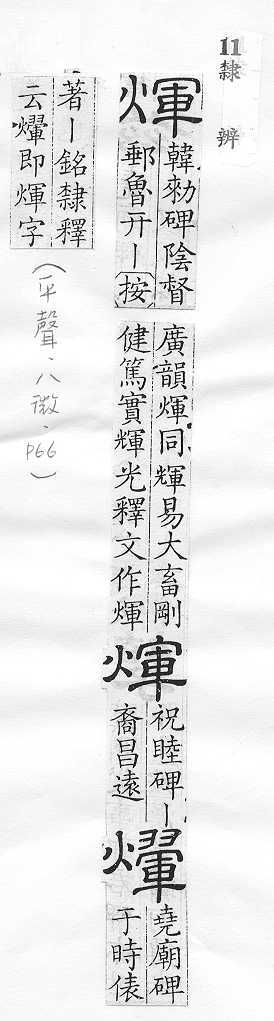 11隸辨
煇
韓勑碑陰督
郵魯开ー按
廣韻煇同輝易大畜剛
健篤實輝光釋文作煇
煇
祝睦碑ー
裔昌遠
燿
堯廟碑
于時俵
著ー銘隸釋
云㷷即煇字
（平聲．八微．P66）